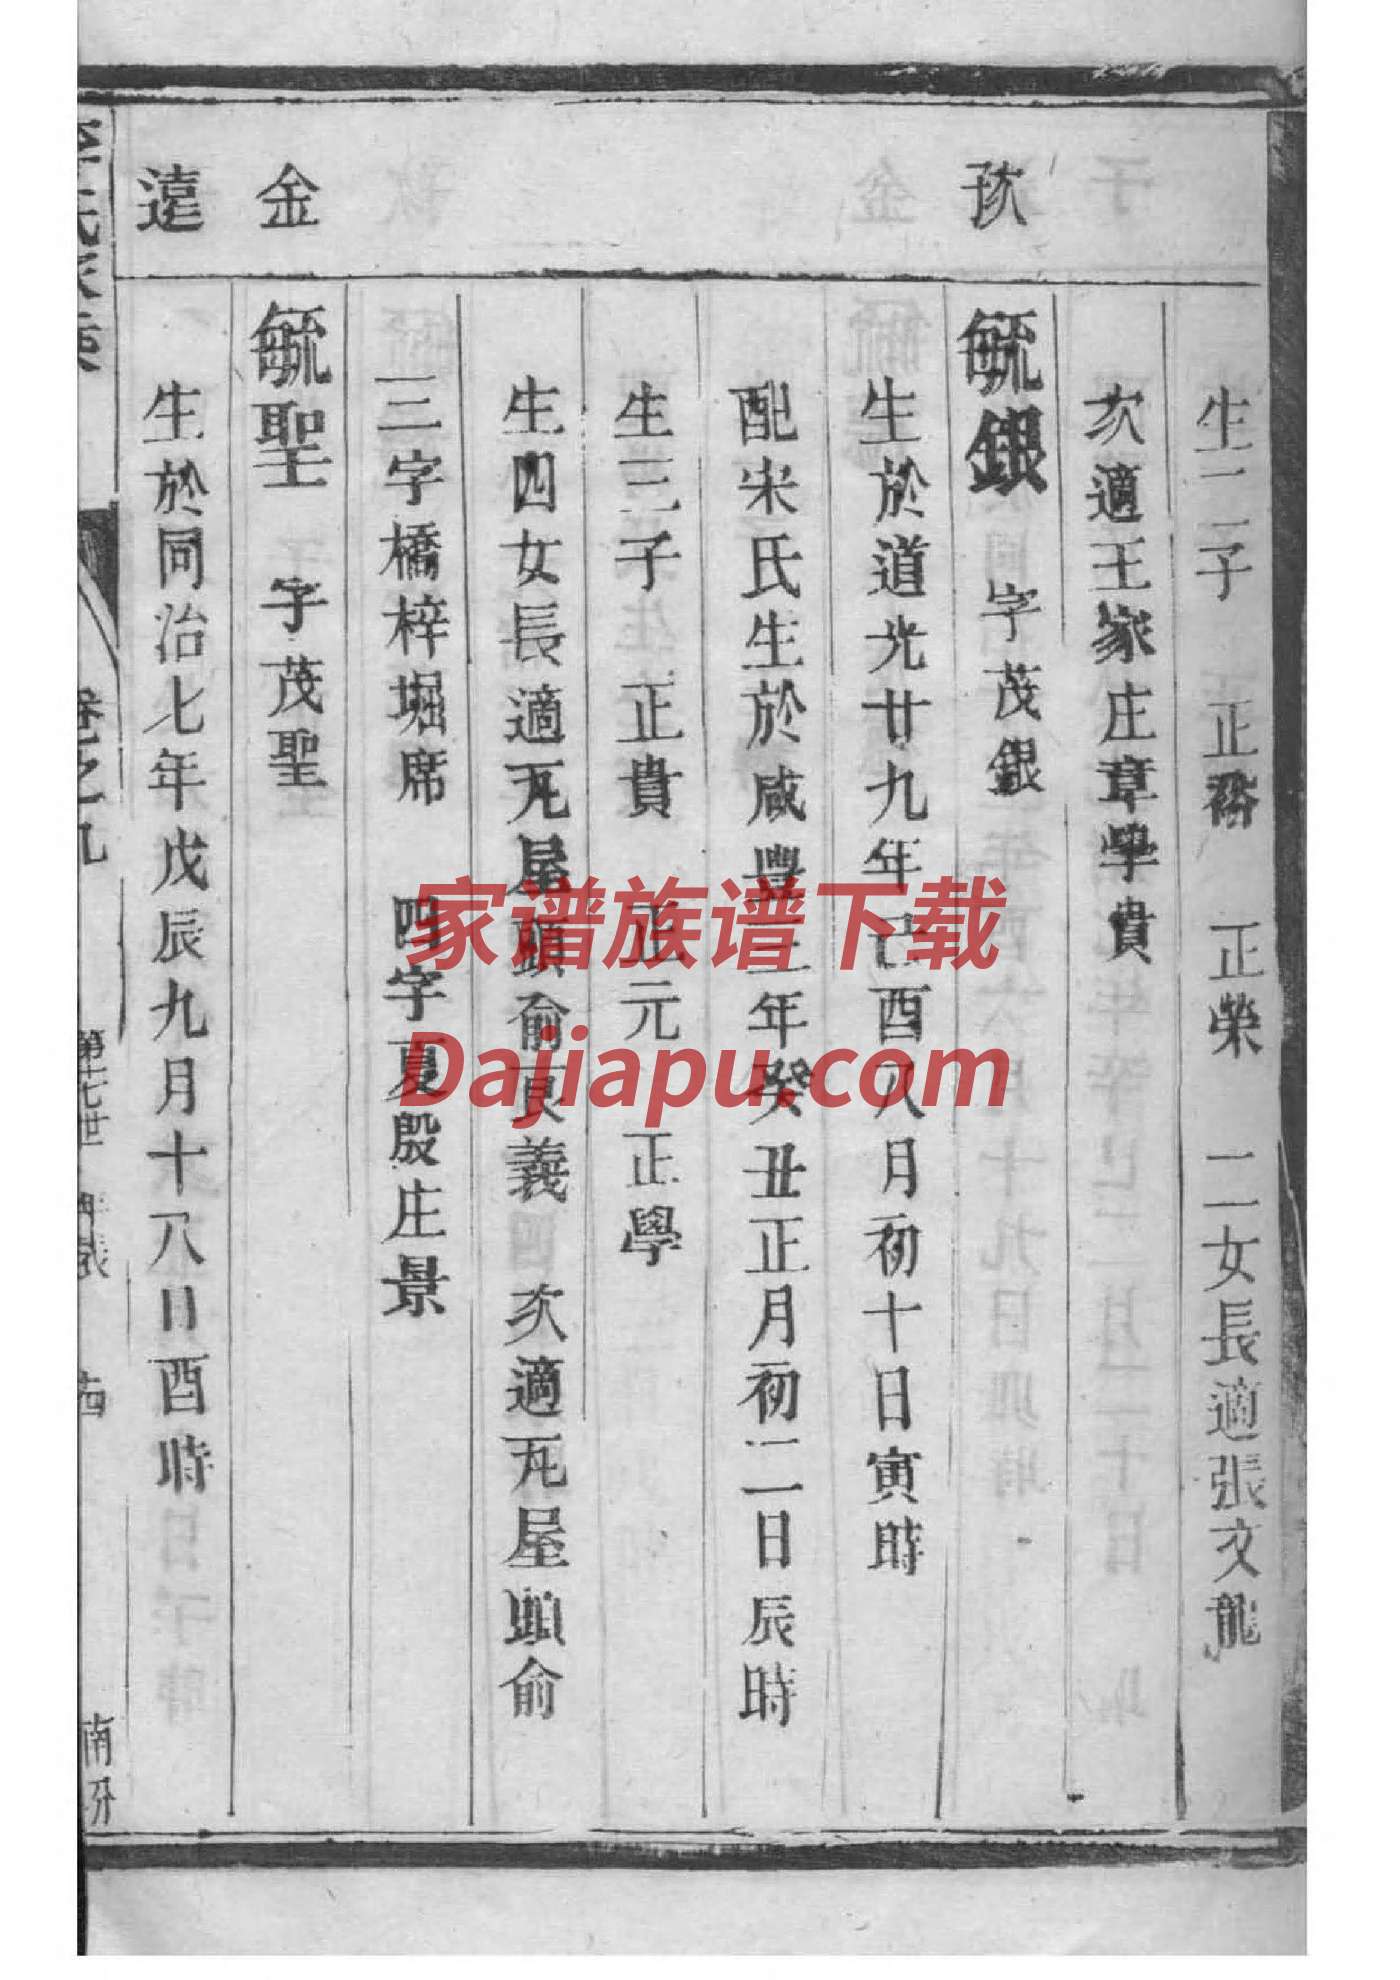 生二子　正裕　正榮　二女長適張文龍
次適王家庄章學貴
毓銀　字茂銀
生於道光廿九年己酉八月初十日寅時
配宋氏生於咸豐三年癸丑正月初二日辰時
生三子　正貴　正元　正學
生四女長適瓦屋頭俞良義　次適瓦屋頭俞
三字橋梓堀席　四字夏殷庄景
金
毓聖　字茂聖
遠
生於同治七年戊辰九月十八日酉時
卷之九
第十七世
南分
家谱族谱下载
Dajiapu.com